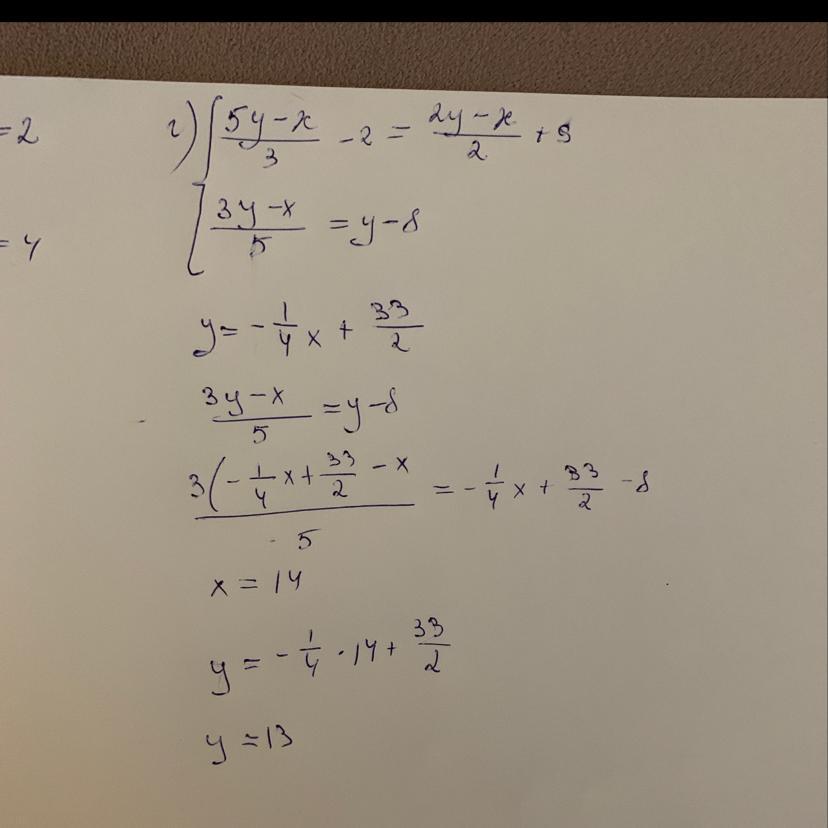 =2
г) { (5y-x)/3 - 2 = (2y-x)/2 + 5
(3y-x)/5 = y-8
=4
y = -1/4 x + 33/2
(3y-x)/5 = y-8
3(-1/4 x + 33/2 - x)/5 = -1/4 x + 33/2 - 8
x = 14
y = -1/4 · 14 + 33/2
y = 13